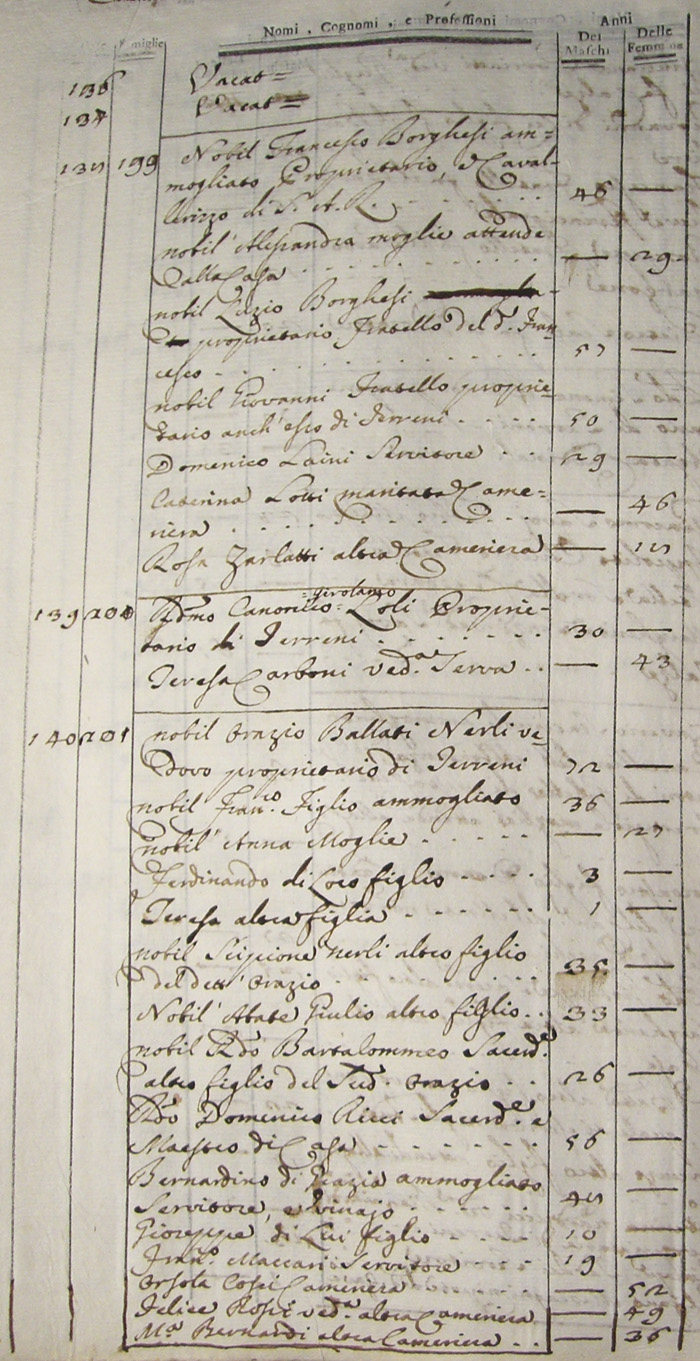 Nomi, Cognomi, e Professioni Anni
Famiglie Dei Maschi Delle Femmine
136 Vacat =
137 Vacat =
138 199 Nobil Francesco Borghesi am=
mogliato Proprietario, e Caval=
lerizzo di S. A. R. 46 —
nobil' Alessandra moglie attende
alla Casa — 29
nobil Lizio Borghesi
proprietario Fratello del d.o Fran=
cesco 57 —
nobil Giovanni Fratello proprie=
tario anch'esso di terreni 50 —
Domenico Laini Servitore 29 —
Caterina Lotti maritata Came=
riera — 46
Rosa Zarlatti altra Cameriera — 18
139 200 Rdmo Canonico =Girolamo= Loli Proprie=
tario di Terreni 30 —
Teresa Carboni ved.a Serva — 43
140 201 nobil Orazio Ballati Nerli ve=
dovo proprietario di Terreni 72 —
nobil Fran.co Figlio ammogliato 36 —
nobil' Anna Moglie — 27
Ferdinando di Loro figlio 3 —
Teresa altra figlia 1 —
nobil Scipione Nerli altro figlio
del det.o Orazio 35 —
Nobil' Abate Giulio altro figlio 33 —
nobil Rdo Bartalommeo Sacerd.e
altro figlio del Sud.o Orazio 26 —
Rdo Domenico Ricci Sacerd.e e
Maestro di Casa 56 —
Bernardino di Grazia ammogliato
Servitore, e Vinajo 48 —
Gioseppe di Lui figlio 10 —
Fran.o Maccari Servitore 19 —
Orsola Cossi Cameriera — 52
Felice Rossi ved.a altra Cameriera — 49
M.a Bernardi altra Cameriera — 36